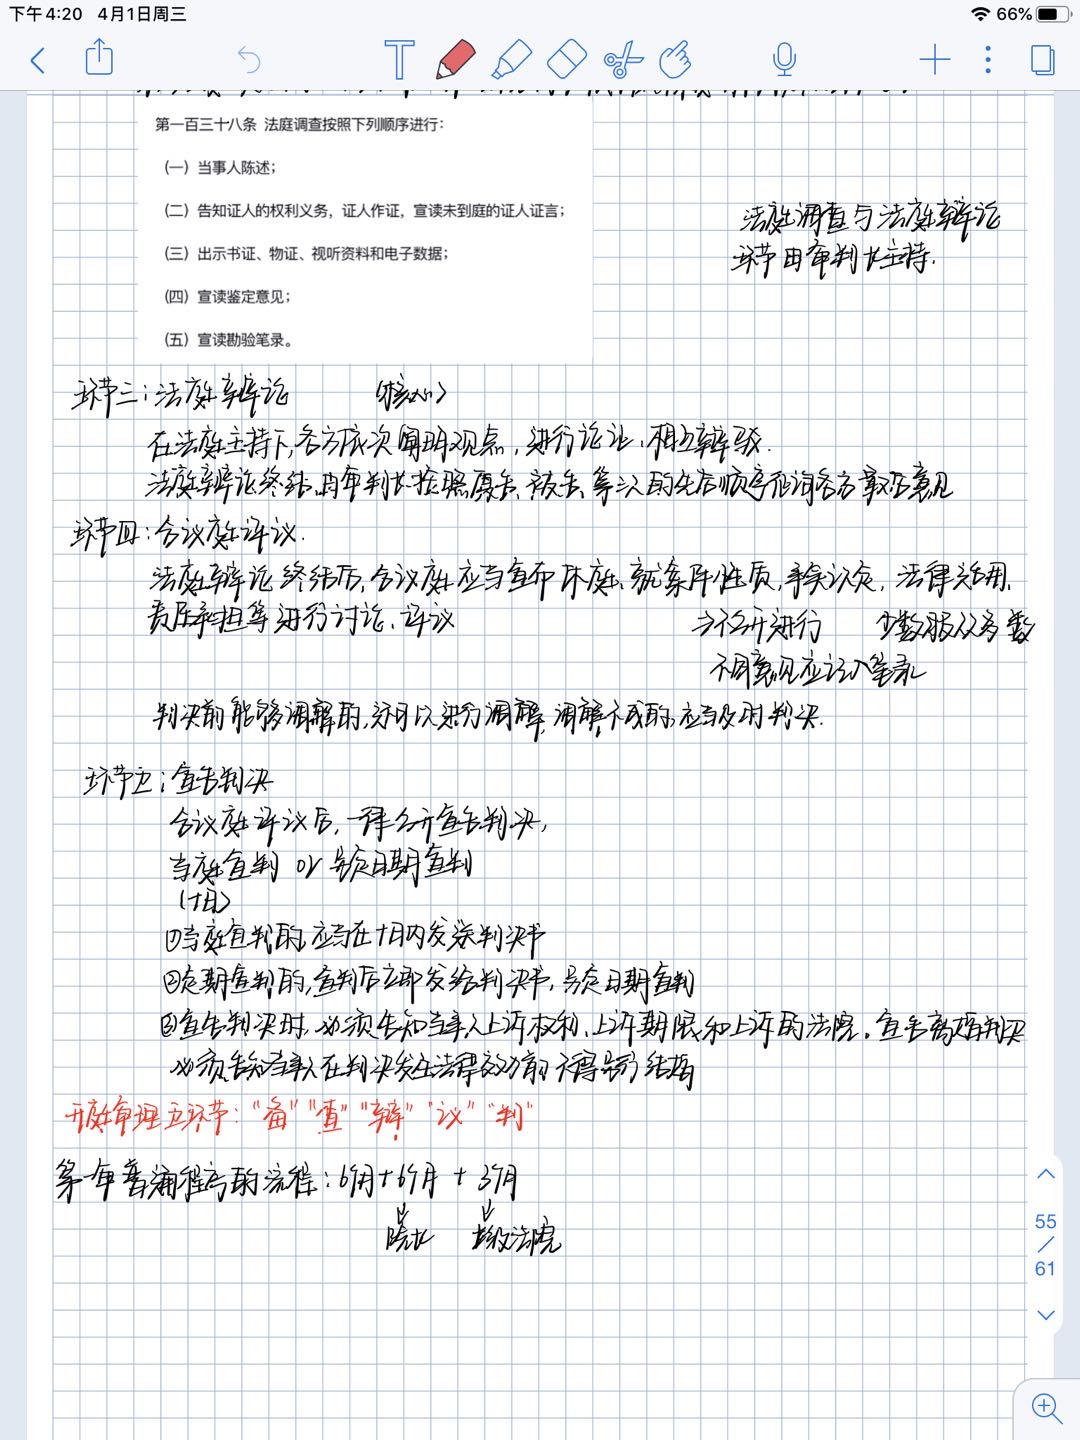 下午4:20 4月1日周三
66%
第一百三十八条 法庭调查按照下列顺序进行：
（一）当事人陈述；
（二）告知证人的权利义务，证人作证，宣读未到庭的证人证言；
（三）出示书证、物证、视听资料和电子数据；
（四）宣读鉴定意见；
（五）宣读勘验笔录。
法庭调查与法庭辩论
环节由审判长主持.
环节三：法庭辩论 （核心）
在法庭主持下,各方依次阐明观点，进行论证、相互辩驳.
法庭辩论终结,由审判长按照原告、被告、第三人的先后顺序征询各方最后意见
环节四：合议庭评议.
法庭辩论终结后,合议庭应当宣布休庭、就案件性质,事实认定,法律适用、
责任承担等进行讨论、评议
→不公开进行 少数服从多数
不同意见应记入笔录
判决前能够调解的,还可以进行调解,调解不成的,应当及时判决.
环节五：宣告判决
合议庭评议后,一律公开宣告判决,
当庭宣判 or 另定日期宣判
（十日）
①当庭宣判的,应当在十日内发送判决书
②定期宣判的,宣判后立即发给判决书,另定日期宣判
③宣告判决时,必须告知当事人上诉权利、上诉期限和上诉的法院。宣告离婚判决
必须告知当事人在判决发生法律效力前不得另行结婚
开庭审理五环节：“备”“查”“辩”“议”“判”
第一审普通程序的流程：6个月+6个月 + 3个月
↓ ↓
院长 上级法院
55
/
61